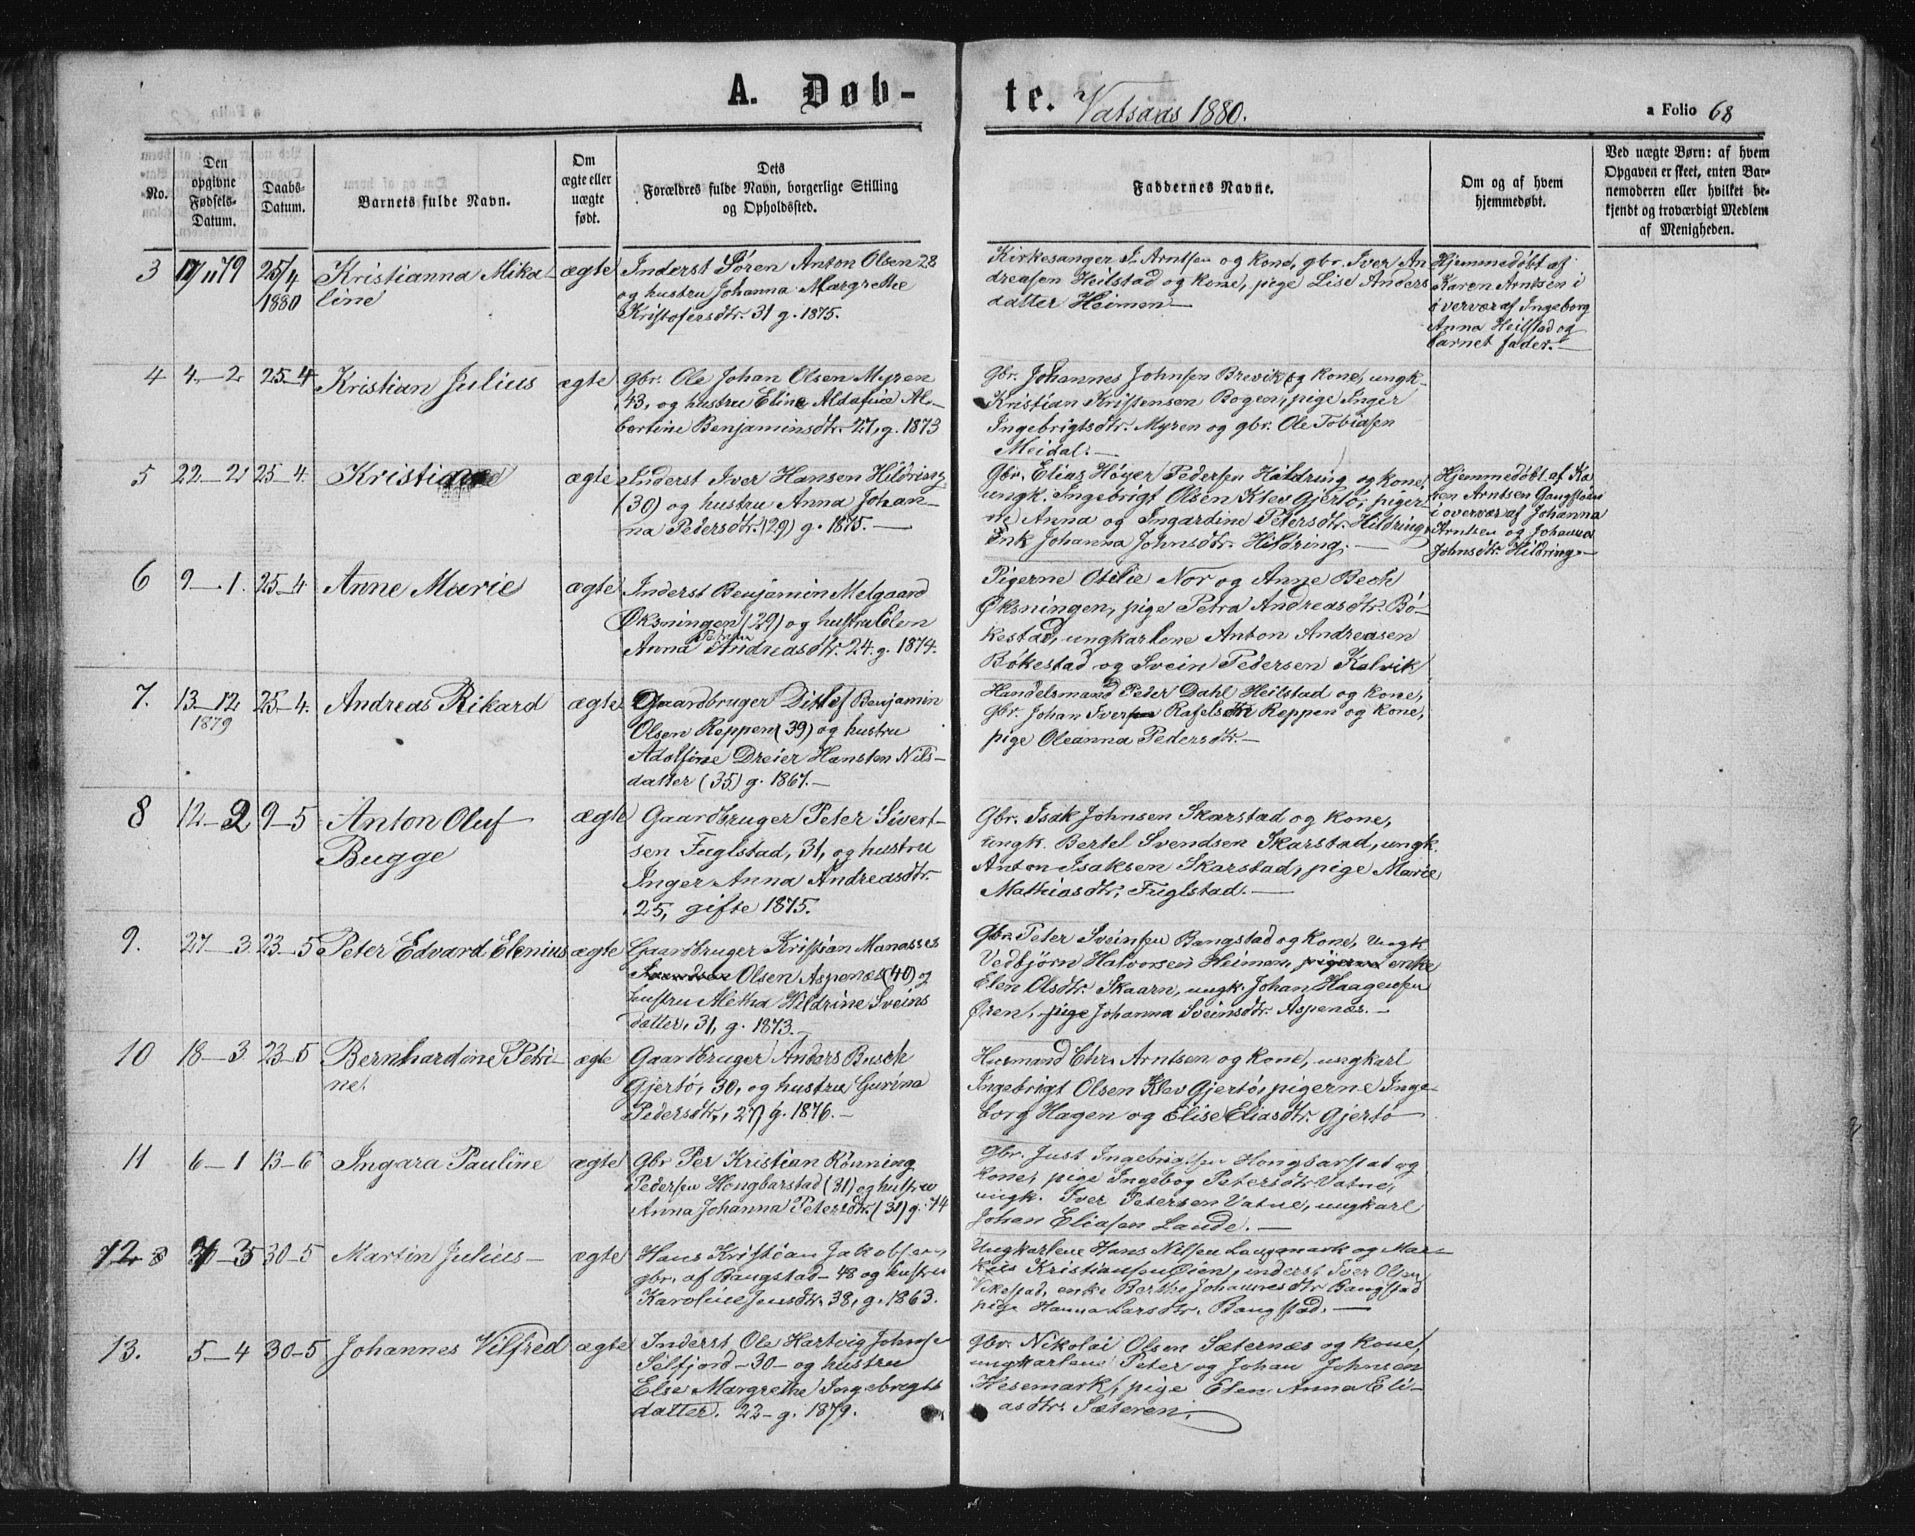 A. Døb-
te.
Vatsaas 1880.
a Folio 68
No.
Den
opgivne
Fødsels-
Datum.
Daabs-
Datum.
Barnets fulde Navn.
Om
ægte eller
uægte
født.
Dets
Forældres fulde Navn, borgerlige Stilling
og Opholdssted.
Faddernes Navne.
Om og af hvem
hjemmedøbt.
Ved uægte Børn: af hvem
Opgaven er skeet, enten Bar-
nemoderen eller hvilket be-
kjendt og troværdigt Medlem
af Menigheden.
3
17/11 79
25/4
1880
Kristianna Mika-
line
ægte
Inderst Søren Anton Olsen 28
og hustru Johanna Margrethe
Kristofersdtr. 31 g. 1875.
Kirkesanger Arntsen og kone, gbr. Iver An
dreasen Heilstad og kone, pige Lise Anders
datter Heimen.—
Hjemmedøbt af
Karen Arntsen i
overvær af Ingeborg
Anna Heilstad og
barnet fader.—
4
4—2
25—4
Kristian Julius
ægte
gbr. Ole Johan Olsen Myren
43, og hustru Eline Aldafine Al-
bertine Benjaminsdtr. 27, g. 1873
gbr. Johannes Johnsen Brevik og kone, ungk.
Kristian Kristensen Bogen, pige Inger
Ingebrigtsdtr. Myren og gbr. Ole Tobiasen
Meidal.—
5
22—2
25—4.
Kristiane
ægte
Inderst Iver Hansen Hildring
(30) og hustru Anna Johan-
na Pedersdtr. (29) g. 1875.—
Gbr. Elias Høyer Pedersen Hildring og kone,
ungk. Ingebrigt Olsen Klev Gjertø, piger-
ne Anna og Ingardine Petersdtr. Hildring,
Enk Johanna Johnsdtr. Hildring.—
Hjemmedøbt af Ka
ren Arntsen
i overvær af Johanna
Arntsen og Johanna
Johnsdtr Hildring.—
6
9—1.
25—4
Anne Marie
ægte
Inderst Benjamin Melgaard
Øksningen (29) og hustru Elen
Anna Petrea Andreasdtr. 24. g. 1874.
Pigerne Otilie Nor og Anne Bech
Øksningen, pige Petra Andreasdtr. Bö-
kestad, ungkarlene Anton Andreasen
Bökestad og Svein Pedersen Kalvik
7.
13—12
1879
25—4.
Andreas Rikard
ægte
Gaardbruger Ditlef Benjamin
Olsen Reppen (39) og hustru
Adolfine Dreier Hansten Nils-
datter (35) g. 1867.—
Handelsmand Peter Dahl Heilstad og kone,
gbr. Johan Iversen Rafelsdtr Reppen og kone,
pige Oleanna Pedersdtr.—
8
12—2
9—5
Anton Oluf
Bugge
ægte
Gaardbruger Peter Sivert-
sen Fuglstad, 31, og hustru
Inger Anna Andreasdtr.
25, gifte 1875.
Gbr. Isak Johnsen Skarstad og kone,
ungk. Bertel Svendsen Skarstad, ungk.
Anton Isaksen Skarstad, pige Marie
Mathiasdtr. Fuglstad.—
9.
27—3
23—5
Peter Edvard Elenius
ægte
Gaardbruger Kristian Manasses
Olsen Aspenæs (40) og
hustru Aletha Hildrine Sveins
datter, 31, g. 1873.—
Gbr. Peter Sveinsen Bangstad og kone, ungk
Vedbjörn Halvorsen Heimen, pigerne enke
Elen Olsdtr. Skaarn, ungk. Johan Haagensen
Øren, pige Johanna Sveinsdtr. Aspenæs.—
10
18—3
23—5
Bernhardine Petri-
ne.
ægte
Gaardbruger Anders Busch
Gjertö, 30, og hustru Gurina
Pedersdtr, 27, g. 1876.—
Husmand Chr. Arntsen og kone, ungkarl
Ingebrigt Olsen Klev Gjertö, pigerne Inge-
borg Hagen og Elise Eliasdtr. Gjertö
11
6—1
13—6
Ingara Pauline
ægte
Gbr Per Kristian Rönning
Pedersen Hongbarstad (31) og hustru
Anna Johanna Petersdtr. (31) g. 74
gbr. Just Ingebrigtsen Hongbarstad og
kone, pige Ingebog Petersdtr Vatne,
ungk. Iver Petersen Vatne, ungkarl
Johan Eliasen Lande.—
12
3
30—5
Martin Julius—
ægte
Hans Kristian Jakobsen,
gbr. af Bangstad—48 og hustru
Karoline Jensdtr. 38, g. 1863.
Ungkarlene Hans Nilsen Langmark og Mar-
kus Kristiansen Øien, inderst Iver Olsen
Vikestad, enke Berthe Johannesdtr Bangstad
pige Hanna Larsdtr. Bangstad.—
13.
5—4
30—5
Johannes Vilfred
ægte
Inderst Ole Hartvig Johnse
Selfjord—30—og hustru
Else Margrethe Ingebregts
datter. 23—g. 1879.
gbr. Nikolai Olsen Sæternes og kone,
ungkarlene Peter og Johan Johnsen
Hesemark, pige Elen Anna Eli-
asdtr. Sæteren.